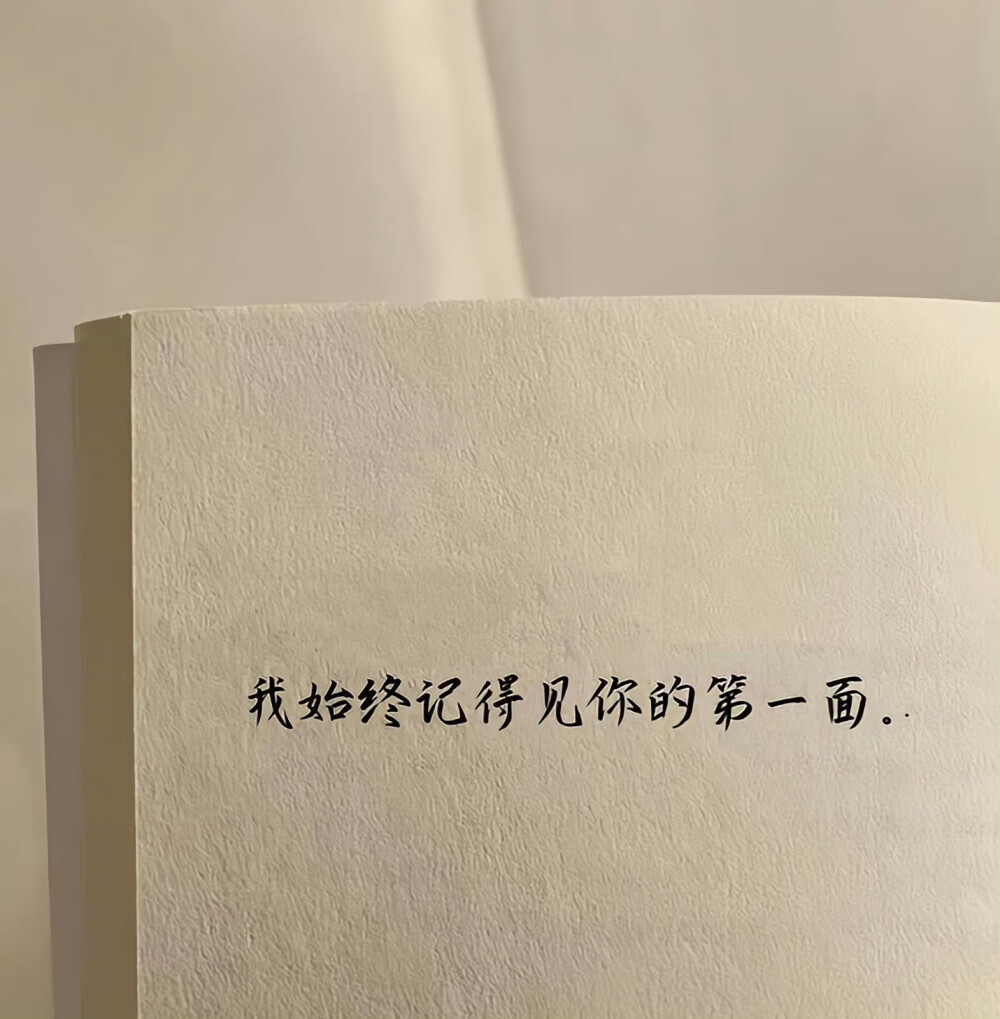 我始终记得见你的第一面。.